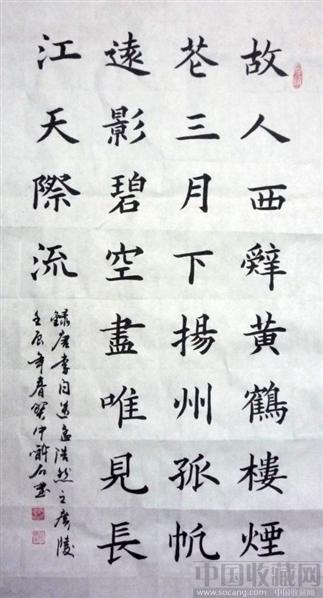 故人西辭黄鶴樓煙
花三月下揚州孤帆
遠影碧空盡唯見長
江天際流
錄唐李白送孟浩然之廣陵
壬辰年春
中国收藏网
www.socang.com 中国收藏网